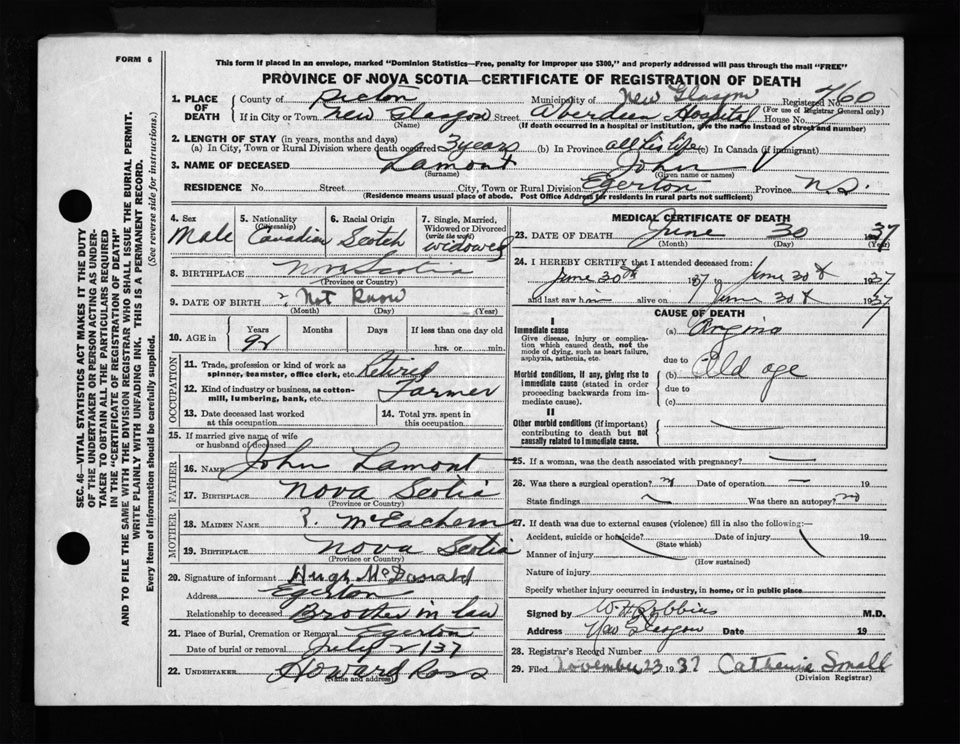 FORM 6
This form if placed in an envelope, marked "Dominion Statistics—Free, penalty for improper use $300," and properly addressed will pass through the mail "FREE"
PROVINCE OF NOVA SCOTIA—CERTIFICATE OF REGISTRATION OF DEATH
1. PLACE OF DEATH County of Pictou Municipality of New Glasgow Registered No. 460
(For use of Registrar General only)
If in City or Town New Glasgow Street Aberdeen Hospital House No.
(Name) (If death occurred in a hospital or institution, give the name instead of street and number)
2. LENGTH OF STAY (in years, months and days)
(a) In City, Town or Rural Division where death occurred 3 years (b) In Province all his life (c) In Canada (if immigrant)
3. NAME OF DECEASED Lamont John
(Surname) (Given name or names)
RESIDENCE No. Street City, Town or Rural Division Egerton Province N.S.
(Residence means usual place of abode. Post Office Address for residents in rural parts not sufficient)
4. Sex Male
5. Nationality (Citizenship) Canadian
6. Racial Origin Scotch
7. Single, Married, Widowed or Divorced (write the word) widowed
8. BIRTHPLACE Nova Scotia
(Province or Country)
9. DATE OF BIRTH ? Not Know
(Month) (Day) (Year)
10. AGE in Years Months Days If less than one day old
92 hrs. or min.
OCCUPATION
11. Trade, profession or kind of work as spinner, teamster, office clerk, etc. Retired
12. Kind of industry or business, as cotton-mill, lumbering, bank, etc. Farmer
13. Date deceased last worked at this occupation
14. Total yrs. spent in this occupation
15. If married give name of wife or husband of deceased
FATHER
16. NAME John Lamont
17. BIRTHPLACE Nova Scotia
(Province or Country)
MOTHER
18. MAIDEN NAME ? McEachern
19. BIRTHPLACE Nova Scotia
(Province or Country)
20. Signature of informant Hugh McDonald
Address Egerton
Relationship to deceased Brother in law
21. Place of Burial, Cremation or Removal Egerton
Date of burial or removal July 2/37
22. UNDERTAKER Howard Ross
(Name and address)
MEDICAL CERTIFICATE OF DEATH
23. DATE OF DEATH June 30 1937
(Month) (Day) (Year)
24. I HEREBY CERTIFY that I attended deceased from:
June 30th 1937 to June 30th 1937
and last saw him alive on June 30th 1937
CAUSE OF DEATH
I
Immediate cause (a) Angina
Give disease, injury or complication which caused death, not the mode of dying, such as heart failure, asphyxia, asthenia, etc.
due to
Morbid conditions, if any, giving rise to immediate cause (stated in order proceeding backwards from immediate cause). (b) Old age
due to
(c)
II
Other morbid conditions (if important) contributing to death but not causally related to immediate cause.
25. If a woman, was the death associated with pregnancy?
26. Was there a surgical operation? no Date of operation 19
State findings Was there an autopsy? no
27. If death was due to external causes (violence) fill in also the following:—
Accident, suicide or homicide? Date of injury 19
(State which)
Manner of injury
(How sustained)
Nature of injury
Specify whether injury occurred in industry, in home, or in public place
Signed by W. H. Robbins M.D.
Address New Glasgow Date 19
28. Registrar's Record Number
29. Filed November 23 1937 Catherine Small
(Division Registrar)
SEC. 46—VITAL STATISTICS ACT MAKES IT THE DUTY
OF THE UNDERTAKER OR PERSON ACTING AS UNDER-
TAKER TO OBTAIN ALL THE PARTICULARS REQUIRED
IN THE "CERTIFICATE OF REGISTRATION OF DEATH"
AND TO FILE THE SAME WITH THE DIVISION REGISTRAR WHO SHALL ISSUE THE BURIAL PERMIT.
WRITE PLAINLY WITH UNFADING INK. THIS IS A PERMANENT RECORD.
Every item of information should be carefully supplied. (See reverse side for instructions.)